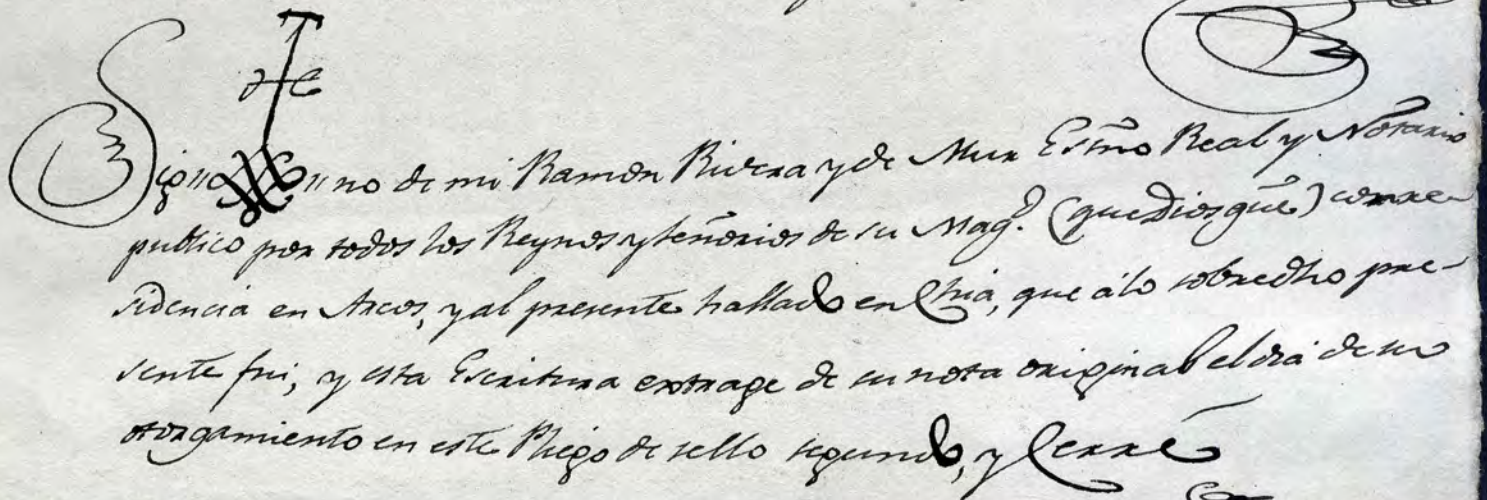 Sig no de mi Ramon Rivera y de Mur Essño Real y Notario
publico por todos los Reynos y señorios de su Mag.d (que Dios güe) con re-
sidencia en Arcos, y al presente hallado en Chia, que á lo sobredho pre-
sente fui, y esta Escritura extrage de su nota original el dia de su
otorgamiento en este Pliego de sello segundo, y Cerré